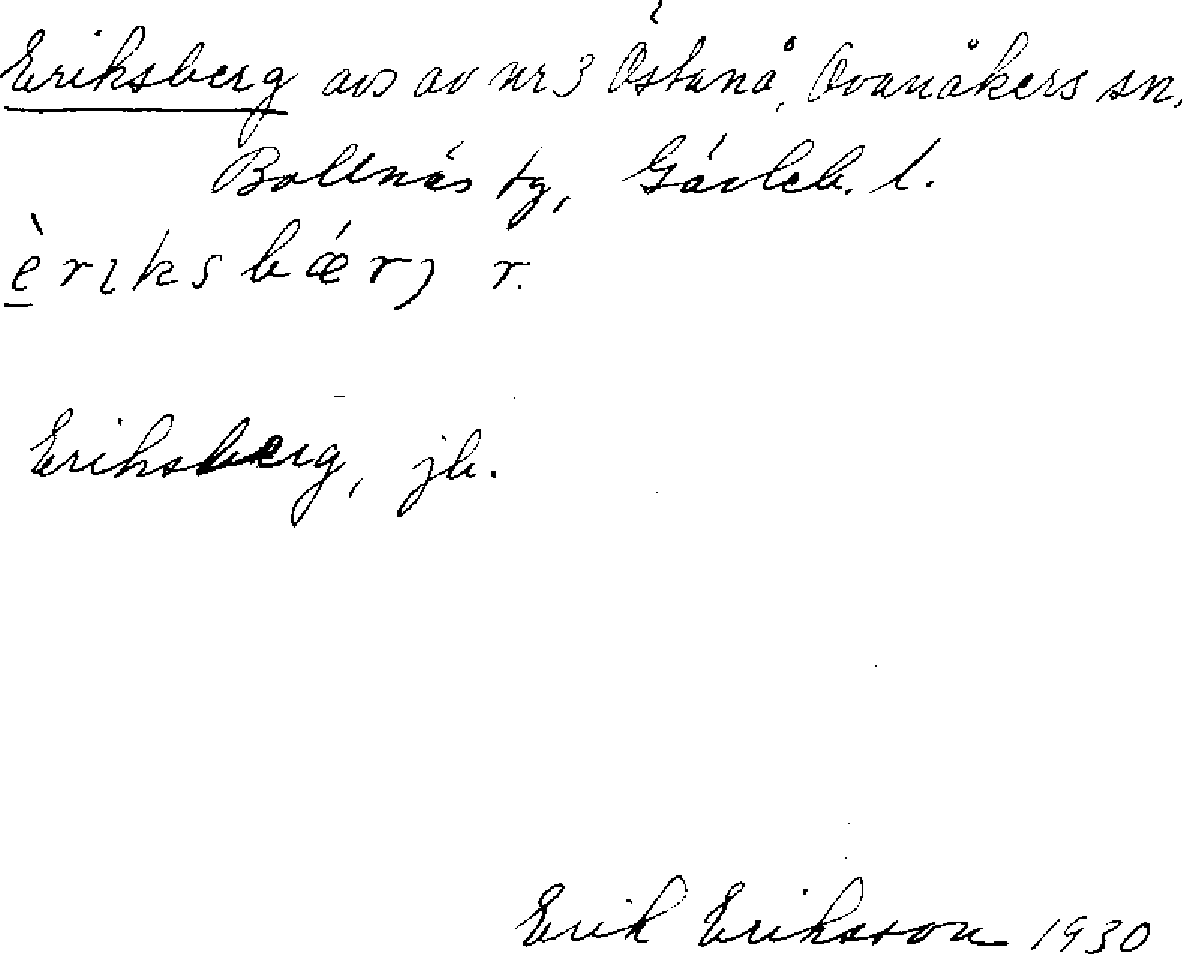 Eriksberg avs av nr 3 Östanå, Ovanåkers sn,
Bollnäs tg, Gävleb. l.
è̲rıksbǽrj r.
Eriksberg, jb.
Erik Eriksson 1930